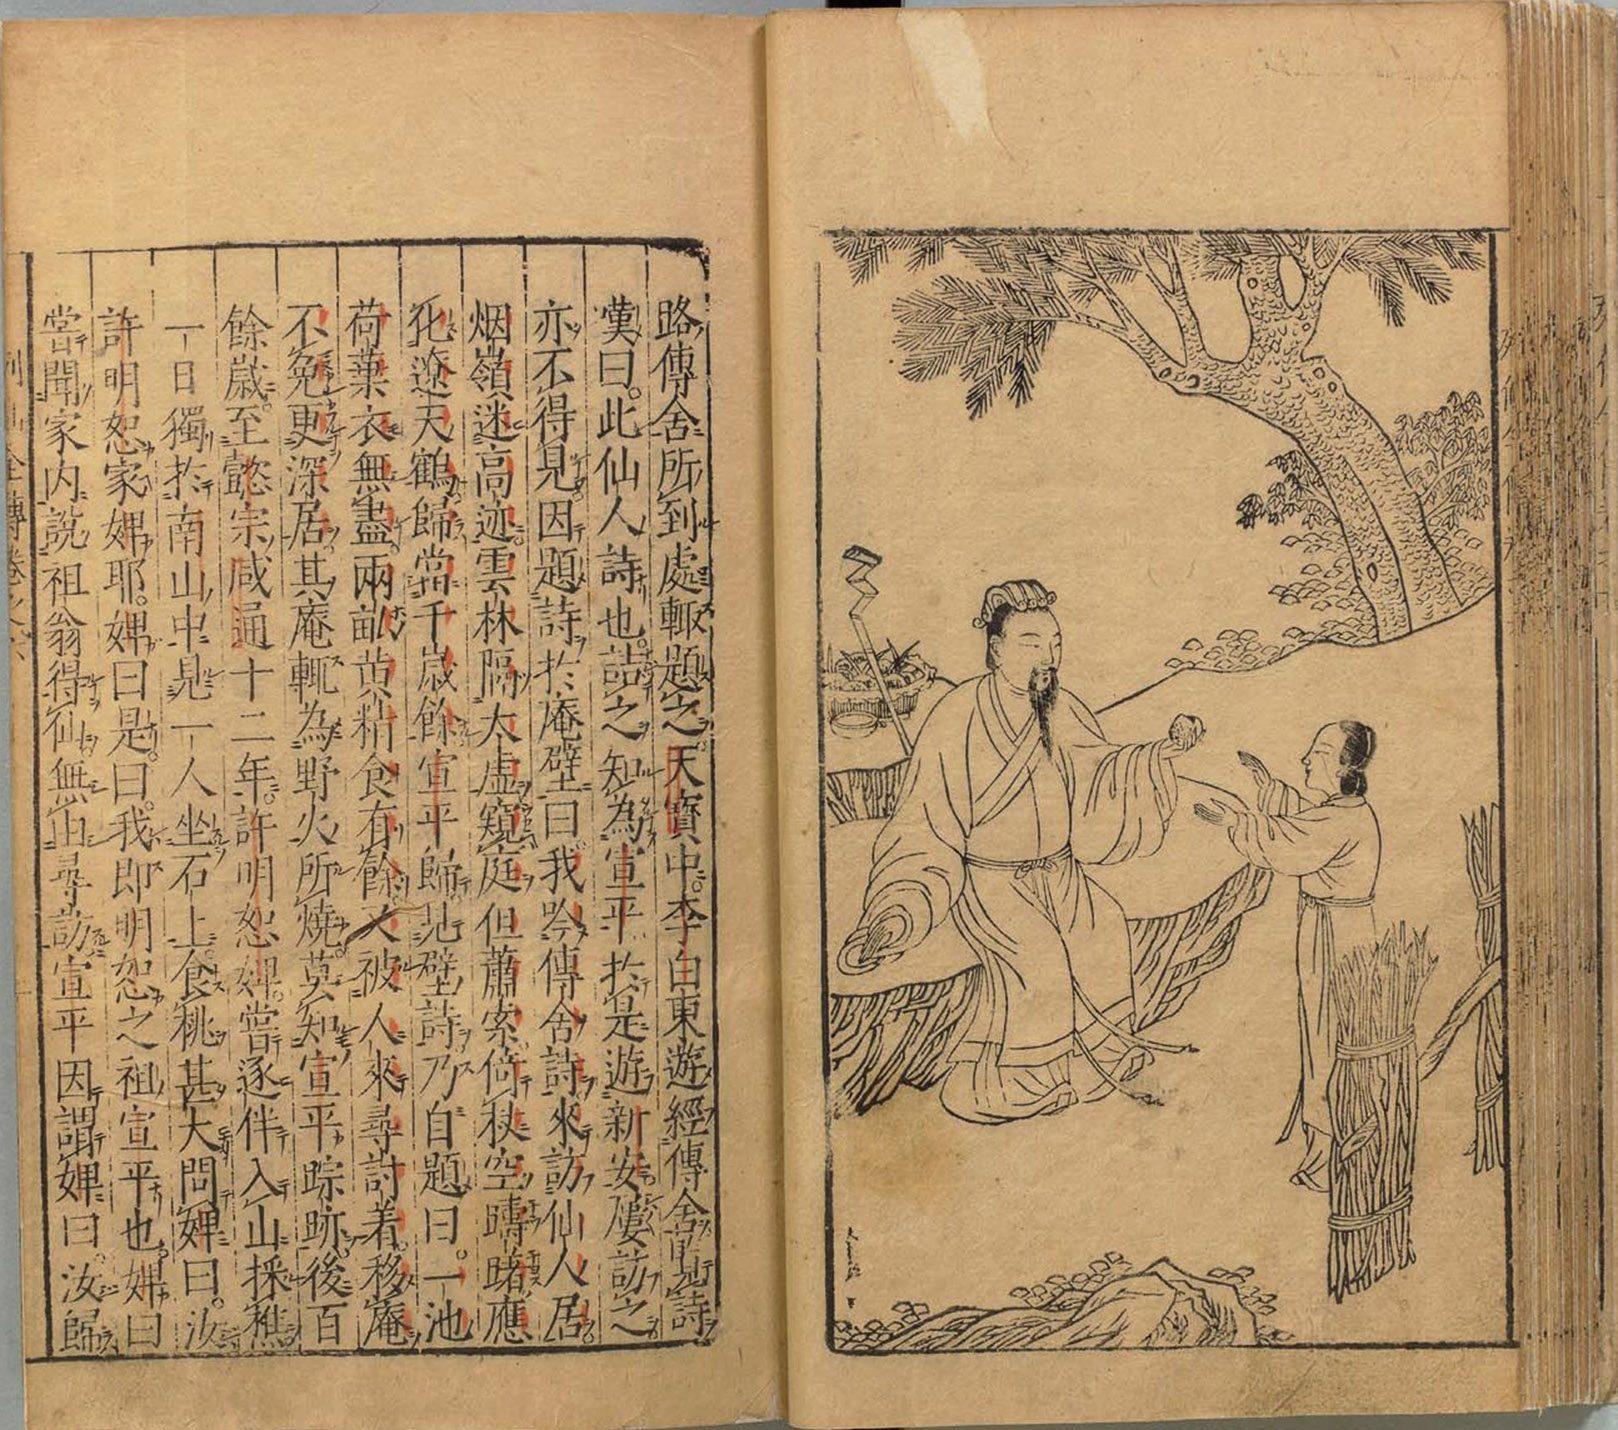 路傳舍所到處輙題之天寳中李白東遊經傳舍覽詩
嘆曰。此仙人詩也。詰之知為宣平扵是遊新安屢訪之
亦不得見。因題詩扵庵壁曰我吟傳舍詩來訪仙人居
烟嶺迷高迹雲林隔太虛窺庭但蕭索倚杖空躊躇應
化遼天鶴歸當千歲餘宣平歸見壁詩乃自題曰。一池
荷葉衣無盡。兩畝黄精食有餘又被人來尋討着移庵
不免更深居。其庵輙為野火所燒。莫知宣平踪跡。後百
餘歲。至懿宗咸通十二年。許明恕婢。嘗逐伴入山採樵
一日獨扵南山中見一人坐石上。食桃甚大問婢曰。汝
許明恕家婢耶。婢曰是。曰。我即明恕之祖宣平也婢曰
嘗聞家内說祖翁得仙無由尋訪宣平因謂婢曰。汝歸